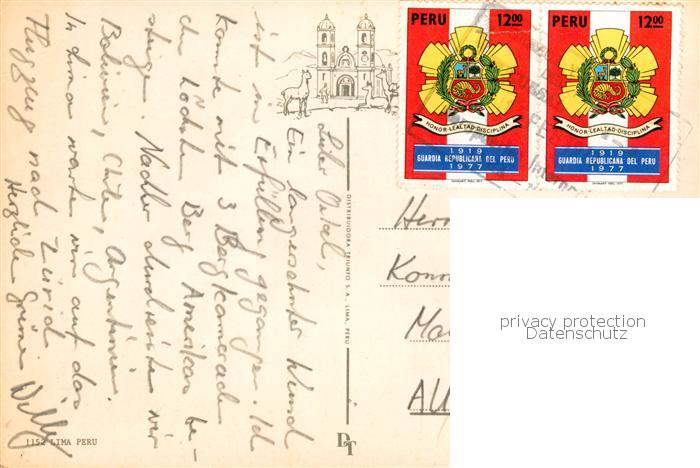 Lieber Onkel,
Ein langersehnter Wunsch
ist in Erfüllung gegangen. Ich
konnte mit 3 Bergkameraden
den höchsten Berg Amerikas be-
steigen. Nachher durchreisten wir
Bolivien, Chile, Argentinien.
In Lima warten wir auf das
Flugzeug nach Zürich
Herzliche Grüsse Willy
1152 LIMA PERU
DISTRIBUIDORA TRIUNFO S. A., LIMA, PERU
DT
PERU 12.00
HONOR-LEALTAD-DISCIPLINA
1919
GUARDIA REPUBLICANA DEL PERU
1977
PERU 12.00
HONOR-LEALTAD-DISCIPLINA
1919
GUARDIA REPUBLICANA DEL PERU
1977
Herr
Konr
Ma
AU
privacy protection
Datenschutz